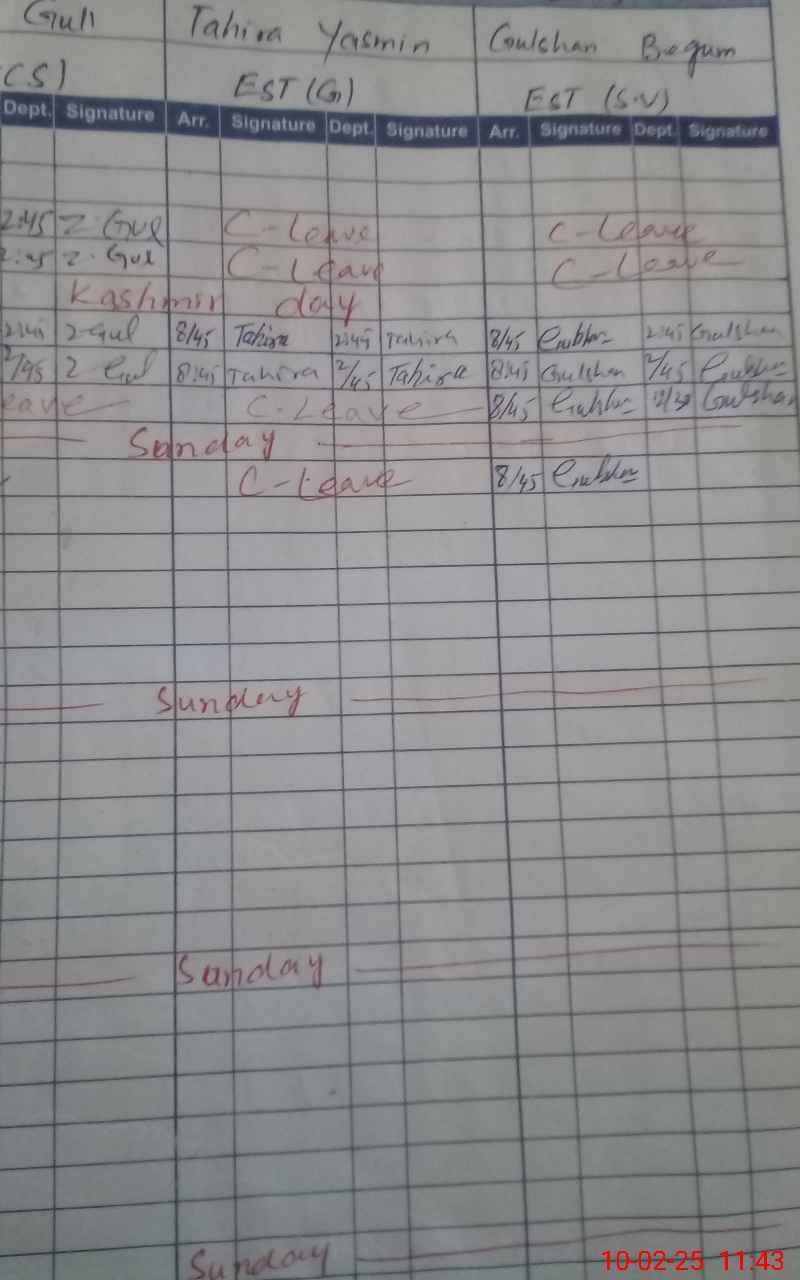 Gull Tahira Yasmin Gulshan Begum
CS) EST (G) EST (S.V)
Dept. Signature Arr. Signature Dept. Signature Arr. Signature Dept. Signature
2:45 Z. Gul C-Leave C-Leave
2:45 Z. Gul C-Leave C-Leave
Kashmir day
2:45 Z-Gul 8/45 Tahira 2:45 Tahira 8/45 2:45 Gulshan
2/45 Z Gul 8:45 Tahira 2/45 Tahira 8:45 Gulshan 2/45
eave C-Leave 8/45 12/30 Gulshan
Sunday
C-Leave 8/45
Sunday
Sunday
Sunday
10-02-25 11:43